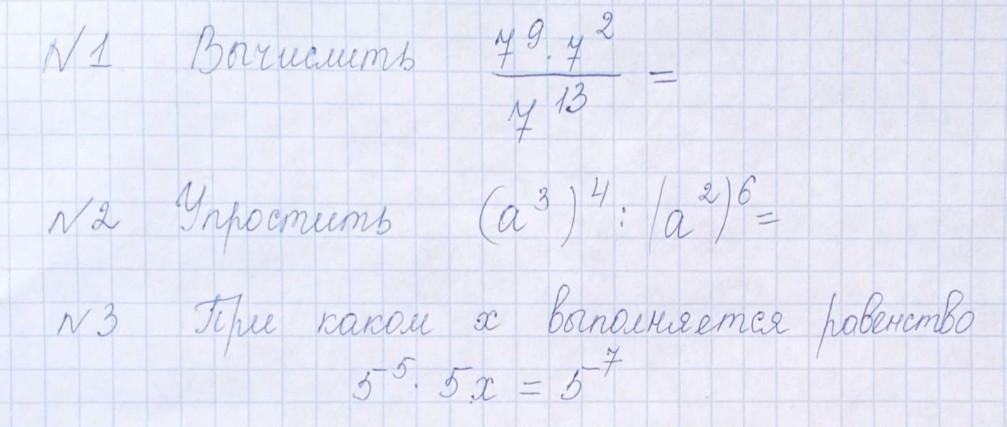 N1 Вычислить (7^9 · 7^2) / 7^13 =
N2 Упростить (a^3)^4 : (a^2)^6 =
N3 При каком x выполняется равенство
5^-5 · 5x = 5^-7